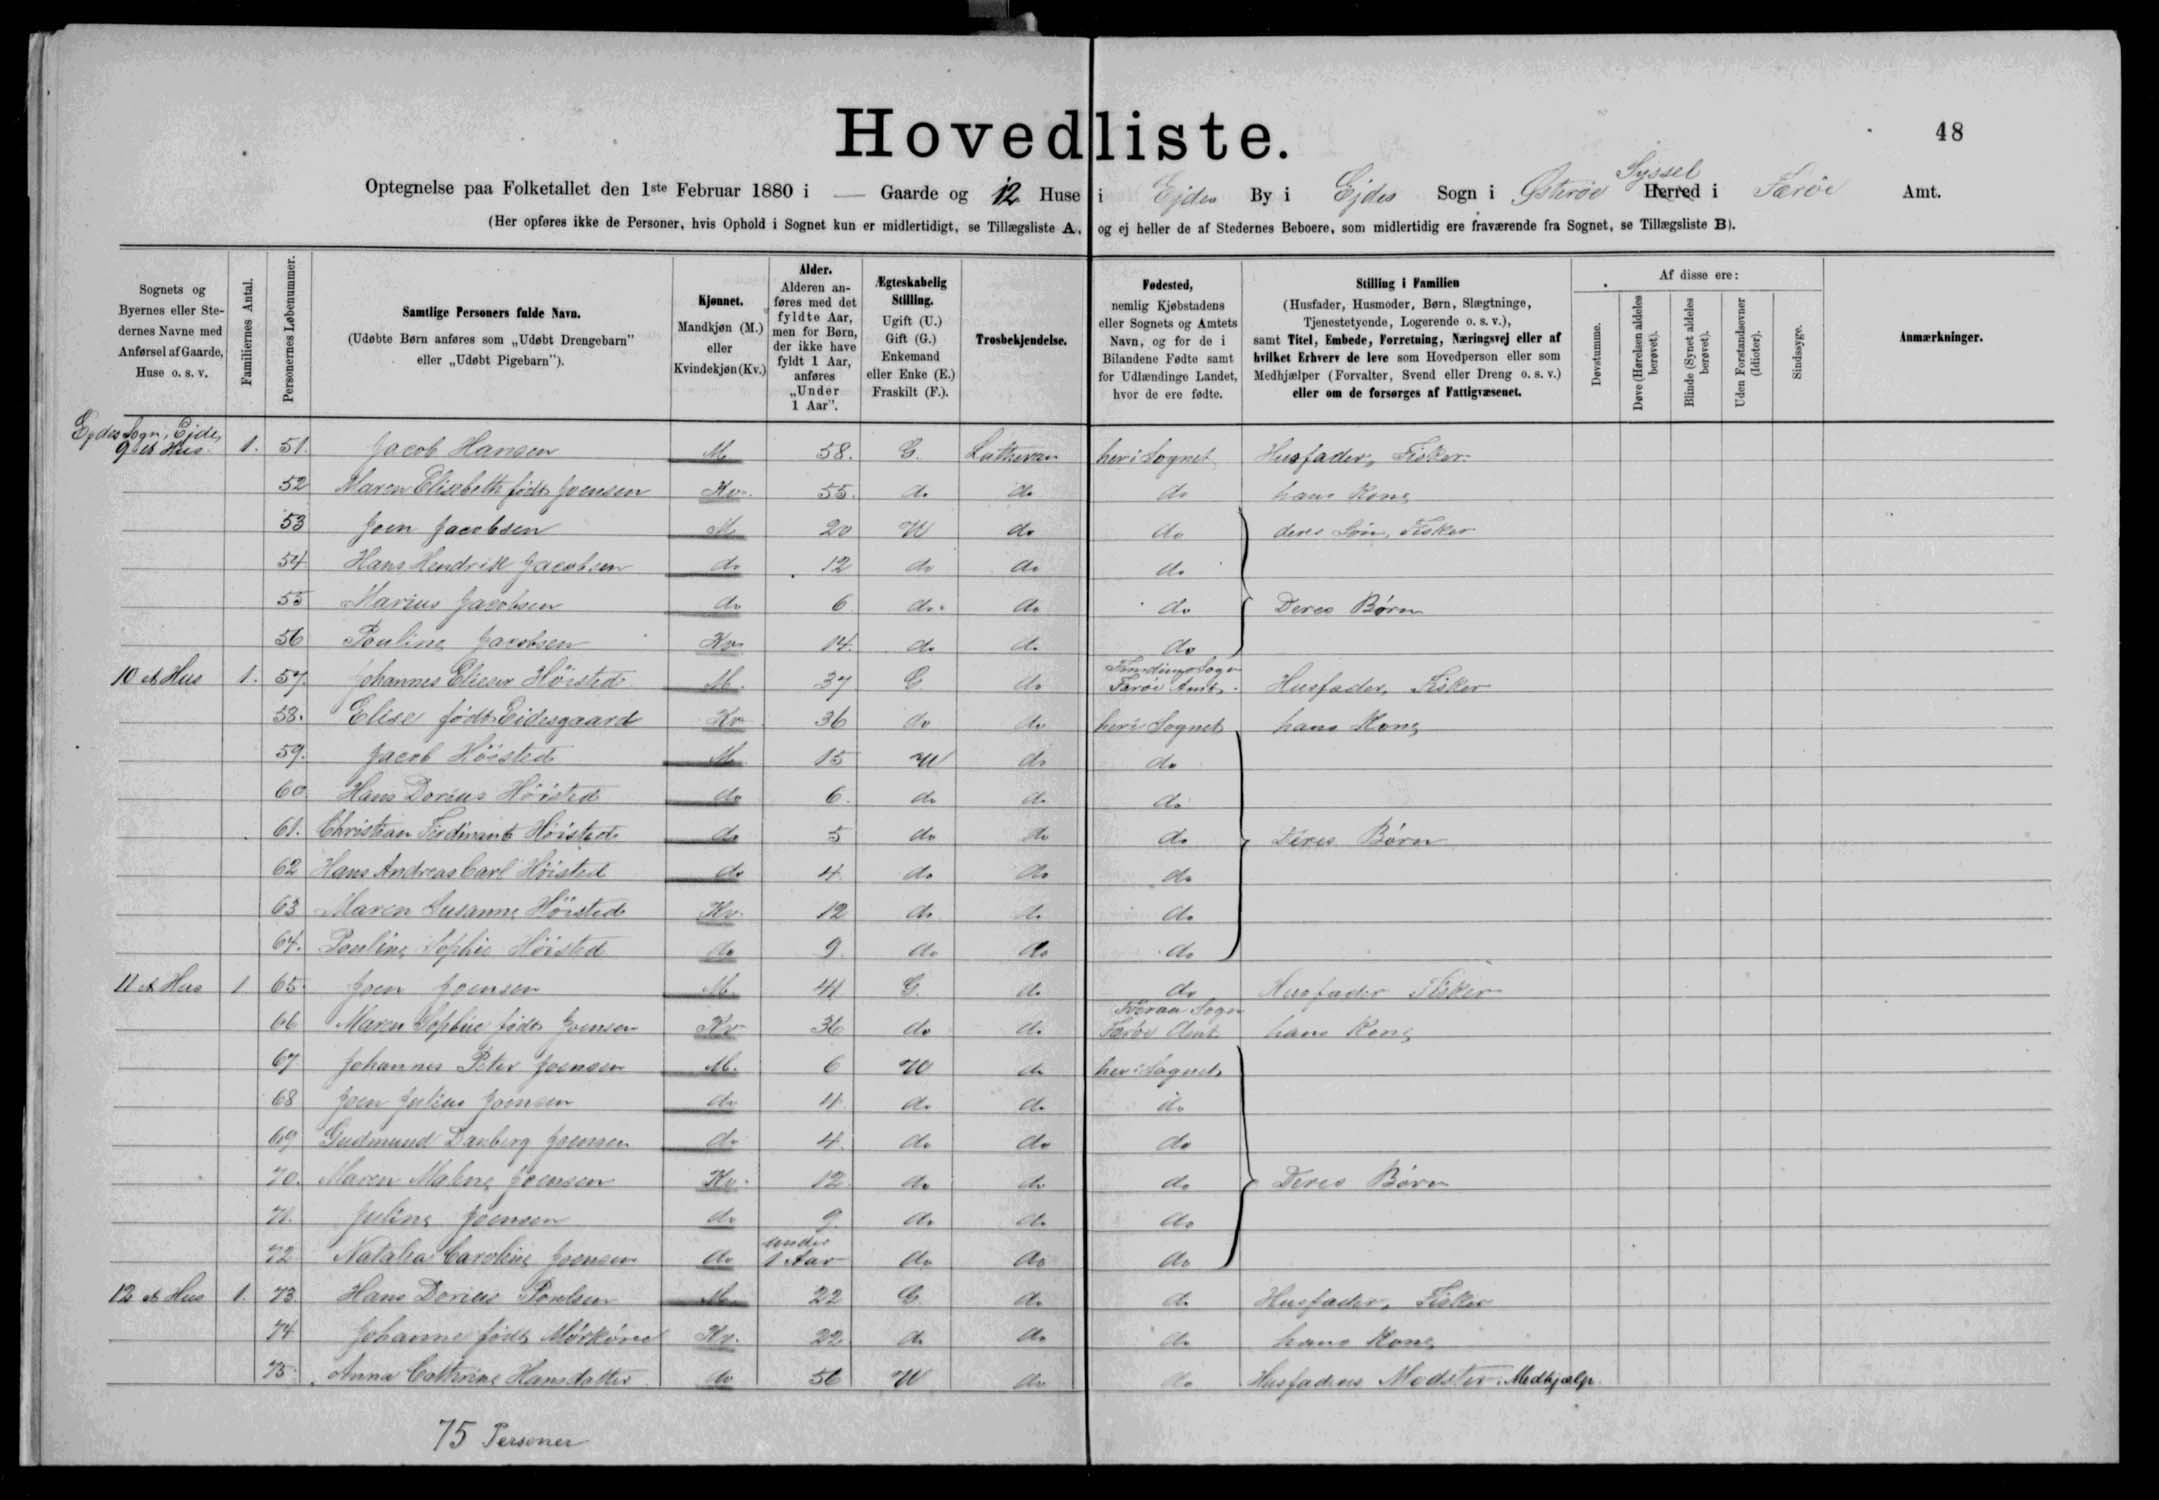 48
Hovedliste.
Optegnelse paa Folketallet den 1ste Februar 1880 i — Gaarde og 12 Huse i Ejde By i Ejdes Sogn i Østerøe Syssel Herred i Færöe Amt.
(Her opføres ikke de Personer, hvis Ophold i Sognet kun er midlertidigt, se Tillægsliste A, og ej heller de af Stedernes Beboere, som midlertidig ere fraværende fra Sognet, se Tillægsliste B).
Sognets og Byernes eller Stedernes Navne med Anførsel af Gaarde, Huse o. s. v.
Familiernes Antal.
Personernes Løbenummer.
Samtlige Personers fulde Navn.
(Udøbte Børn anføres som „Udøbt Drengebarn" eller „Udøbt Pigebarn").
Kjønnet.
Mandkjøn (M.) eller Kvindekjøn (Kv.)
Alder.
Alderen anføres med det fyldte Aar, men for Børn, der ikke have fyldt 1 Aar, anføres „Under 1 Aar".
Ægteskabelig Stilling.
Ugift (U.) Gift (G.) Enkemand eller Enke (E.) Fraskilt (F.).
Trosbekjendelse.
Fødested,
nemlig Kjøbstadens eller Sognets og Amtets Navn, og for de i Bilandene Fødte samt for Udlændinge Landet, hvor de ere fødte.
Stilling i Familien
(Husfader, Husmoder, Børn, Slægtninge, Tjenestetyende, Logerende o. s. v.),
samt Titel, Embede, Forretning, Næringsvej eller af hvilket Erhverv de leve som Hovedperson eller som Medhjælper (Forvalter, Svend eller Dreng o. s. v.) eller om de forsørges af Fattigvæsenet.
Af disse ere:
Døvstumme.
Døve (Hørelsen aldeles berøvet).
Blinde (Synet aldeles berøvet).
Uden Forstandsevner (Idioter).
Sindssyge.
Anmærkninger.
Ejdes Sogn, Ejde,
9de Hus. 1. 51. Jacob Hansen M 58. G. Lutheran her i Sognet Husfader, Fisker
52 Maren Elisabeth født Joensen Kv. 55. do do do hans Kone
53 Joen Jacobsen M. 20 U do do deres Søn, Fisker
54 Hans Hendrik Jacobsen do 12 do do do
55 Marius Jacobsen do 6 do do do Deres Børn
56 Pauline Jacobsen Kv 14. do do do
10 et Hus 1. 57. Johannes Elieser Höisted M. 37 G do Sogn Færöe Amt. Husfader, Fisker
58. Elise født Eidesgaard Kv 36 do do her i Sognet hans Kone
59. Jacob Höisted M 15 U do do
60 Hans Dorius Höisted do 6. do do do
61. Christian Ferdinant Höisted do 5 do do do Deres Børn
62 Hans Andreas Carl Höisted do 4. do do do
63 Maren Susanne Höisted Kv. 12 do do do
64. Pauline Sophie Höisted do 9. do do do
11 et Hus 1 65. Joen Joensen M. 41 G. do do Husfader Fisker
66 Maren Sophie født Joensen Kv 36 do do Sogn Færöe Amt. hans Kone
67. Johannes Peter Joensen M. 6 U do her i Sognet
68 Joen Julius Joensen do 11. do do do
69 Gudmund Danberg Joensen do 4. do do do
70. Maren Malene Joensen Kv. 12. do do do Deres Børn
71. Juline Joensen do 9. do do do
72 Natalia Caroline Joensen do under 1 Aar do do do
12 et Hus 1. 73. Hans Dorius Poulsen M 22 G do do Husfader, Fisker
74 Johanne født Mörköre Kv. 22. do do do hans Kone
75. Anna Cathrine Hansdatter do 56 U do do Husfaders Modster. Medhjælp.
75 Personer